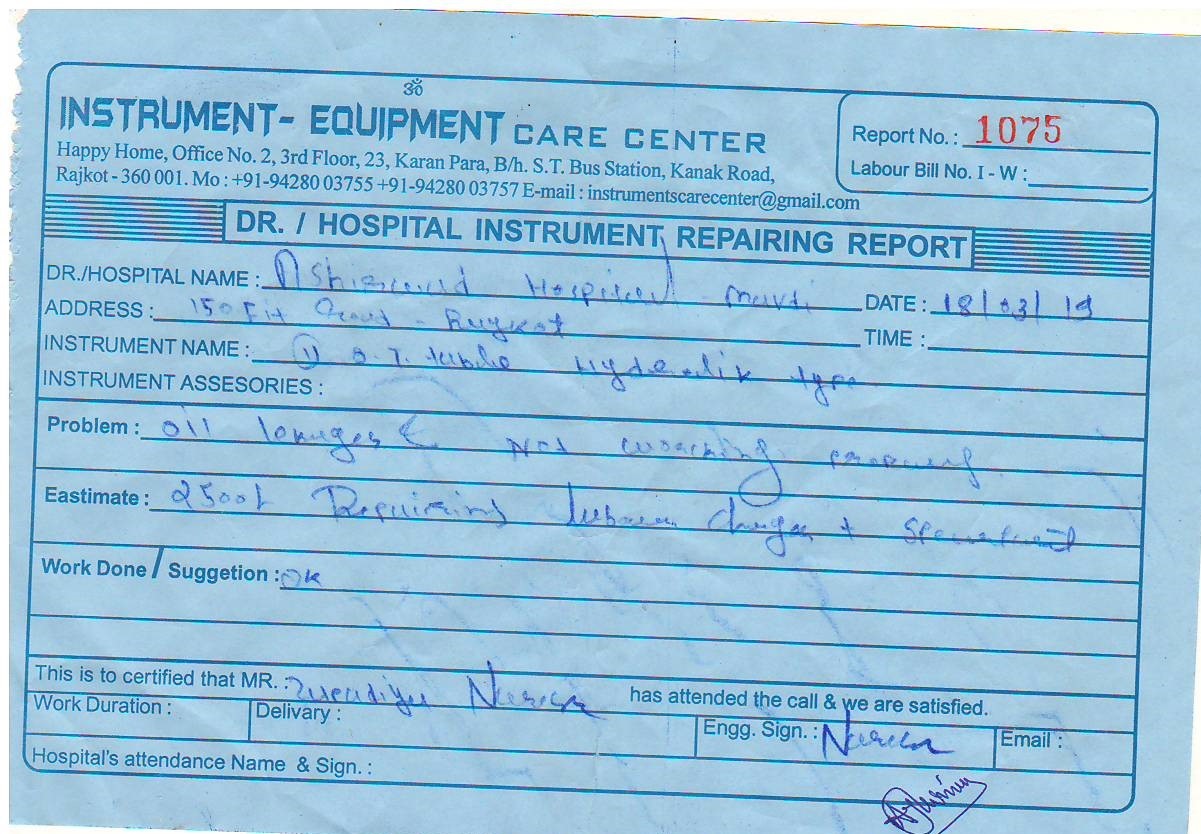 ॐ
INSTRUMENT- EQUIPMENT CARE CENTER
Happy Home, Office No. 2, 3rd Floor, 23, Karan Para, B/h. S.T. Bus Station, Kanak Road,
Rajkot - 360 001. Mo : +91-94280 03755 +91-94280 03757 E-mail : instrumentscarecenter@gmail.com
Report No. : 1075
Labour Bill No. I - W :
DR. / HOSPITAL INSTRUMENT REPAIRING REPORT
DR./HOSPITAL NAME : Hospital -
DATE : 18/03/19
ADDRESS : 150 -
TIME :
INSTRUMENT NAME : O.T. table type
INSTRUMENT ASSESORIES :
Problem : oil Not
Eastimate : Repairing +
Work Done / Suggetion : OK
This is to certified that MR. : Naren has attended the call & we are satisfied.
Work Duration :
Delivary :
Engg. Sign. : Naren
Email :
Hospital's attendance Name & Sign. :